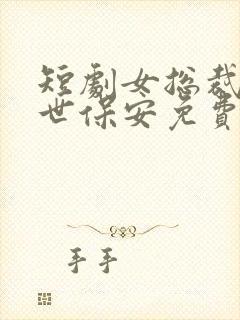 短劇女总裁
世保安免費
手手